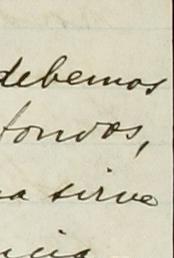 debemos
fondos,
a sirve